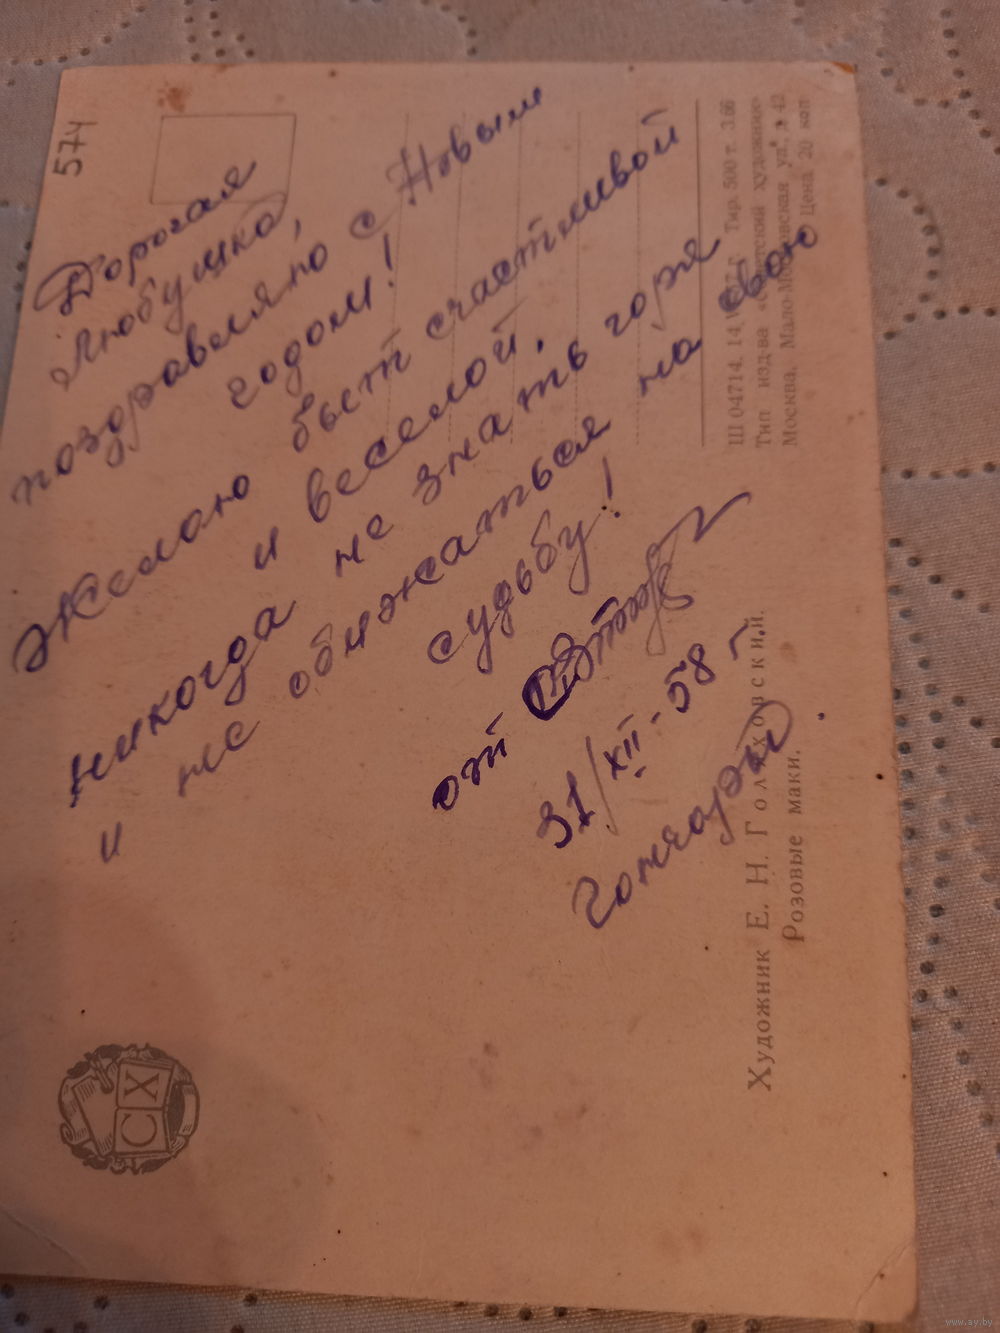 574
Дорогая
Любушка,
поздравляю с Новым
годом!
Желаю быть счастливой
и веселой,
никогда не знать горя
и не обижаться на свою
судьбу!
от
31/XII-58 г.
Гончарой
Ш 04714. 14 Тир. 500 т. З.66
Тип изд-ва «Советский художник»
Москва, Мало-Московская ул., д. 42
Цена 20 коп
Художник Е. Н. Голяховский.
Розовые маки.
СХ
www.ay.by